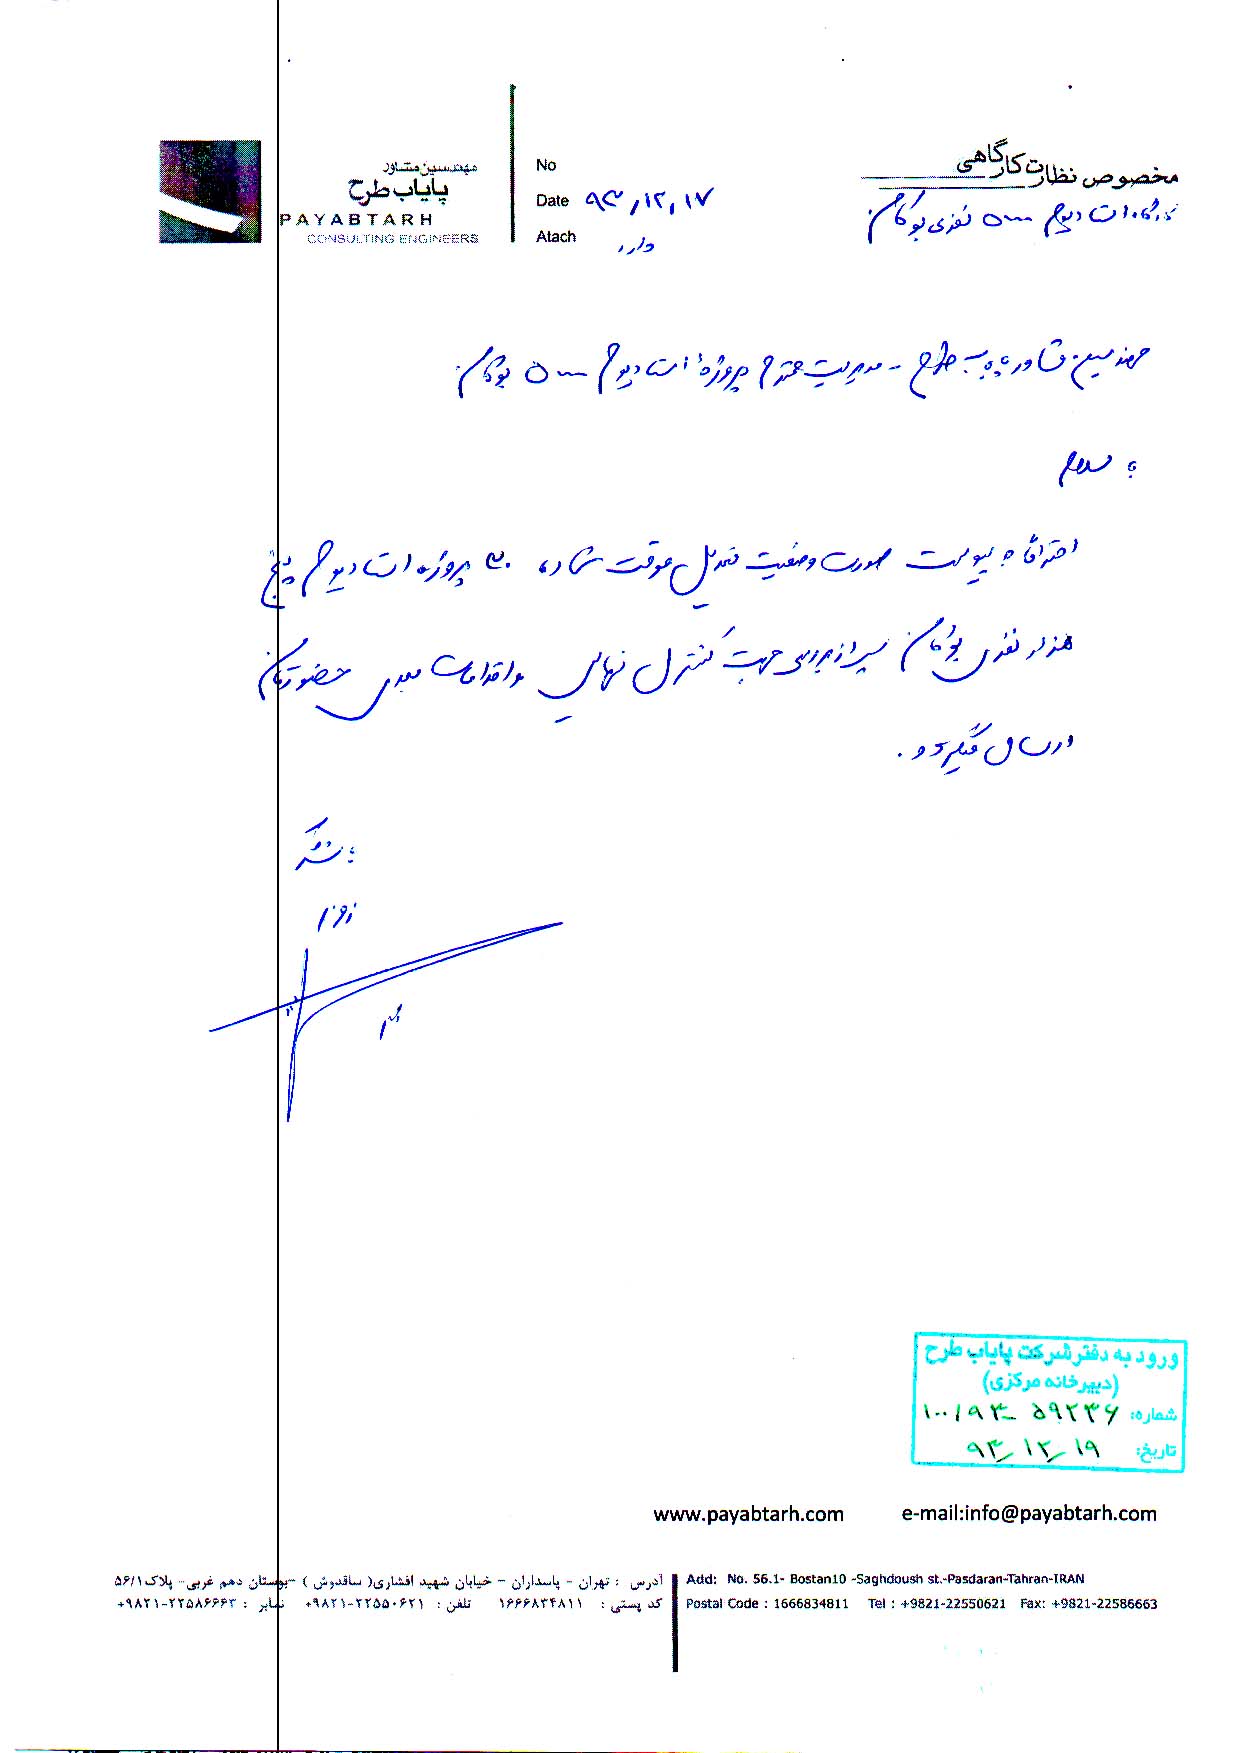 مهندسین مشاور
پایاب طرح
PAYABTARH
CONSULTING ENGINEERS
No
Date ۹۳/۱۲/۱۷
Atach دارد
مخصوص نظارت کارگاهی
استادیوم ۵۰۰۰ نفری بوکان
مهندسین مشاور پایاب طرح - مدیریت محترم پروژه استادیوم ۵۰۰۰ بوکان
با سلام
احتراماً به پیوست صورت وضعیت تعدیل موقت شماره ۳۰ پروژه استادیوم پنج
هزار نفری بوکان پس از بررسی جهت کنترل نهایی و اقدامات بعدی حضورتان
ارسال میگردد.
با تشکر
ورود به دفتر شرکت پایاب طرح
(دبیرخانه مرکزی)
شماره: ۱۰۰/۹۳-۵۹۲۳۶
تاریخ: ۹۳/۱۲/۱۹
www.payabtarh.com e-mail:info@payabtarh.com
آدرس : تهران - پاسداران - خیابان شهید افشاری( ساقدوش ) -بوستان دهم غربی- پلاک۵۶/۱
کد پستی : ۱۶۶۶۸۳۴۸۱۱ تلفن : ۲۲۵۵۰۶۲۱-۹۸۲۱+ نمابر : ۲۲۵۸۶۶۶۳-۹۸۲۱+
Add: No. 56.1- Bostan10 -Saghdoush st.-Pasdaran-Tahran-IRAN
Postal Code : 1666834811 Tel : +9821-22550621 Fax: +9821-22586663